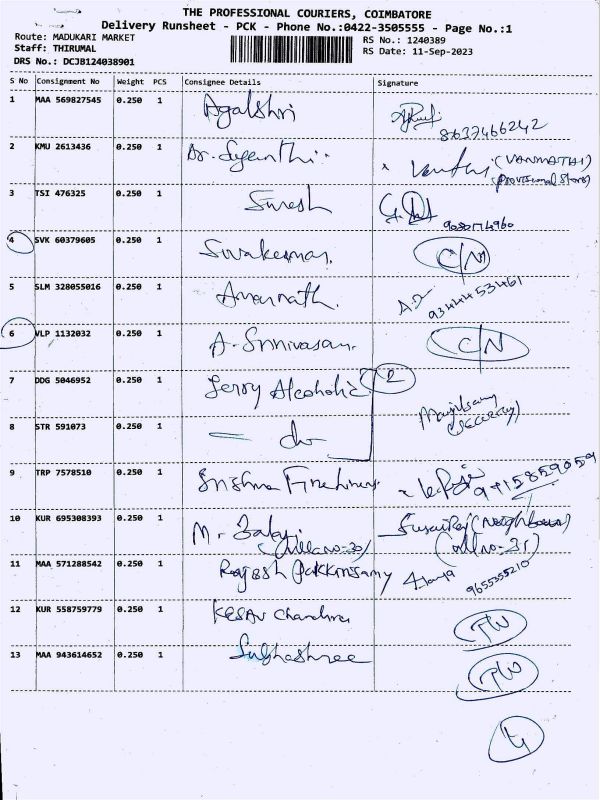 THE PROFESSIONAL COURIERS, COIMBATORE
Delivery Runsheet - PCK - Phone No.:0422-3505555 - Page No.:1
Route: MADUKARI MARKET
Staff: THIRUMAL
DRS No.: DCJB124038901
RS No.: 1240389
RS Date: 11-Sep-2023
S No Consignment No Weight PCS Consignee Details Signature
1 MAA 569827545 0.250 1 Agalshri
8637466242
2 KMU 2613436 0.250 1 Dr. (VANMATHI)
(Provisional Store)
3 TSI 476325 0.250 1 Suresh
4 SVK 60379605 0.250 1 Sivakumar. C/N
5 SLM 328055016 0.250 1 Amarnath.
9344453461
6 VLP 1132032 0.250 1 A. Srinivasan. C/N
7 DDG 5046952 0.250 1 Alcoholic 2
(Security)
8 STR 591073 0.250 1 do
9 TRP 7578510 0.250 1 9715859059
10 KUR 695308393 0.250 1 Mr. Balaji Susairaj (Neighbour)
(Villa no:30) (Villa no:31)
11 MAA 571288542 0.250 1 Rajesh Pakkirisamy
9655355210
12 KUR 558759779 0.250 1 Kesav Chandra
13 MAA 943614652 0.250 1 Subhashree